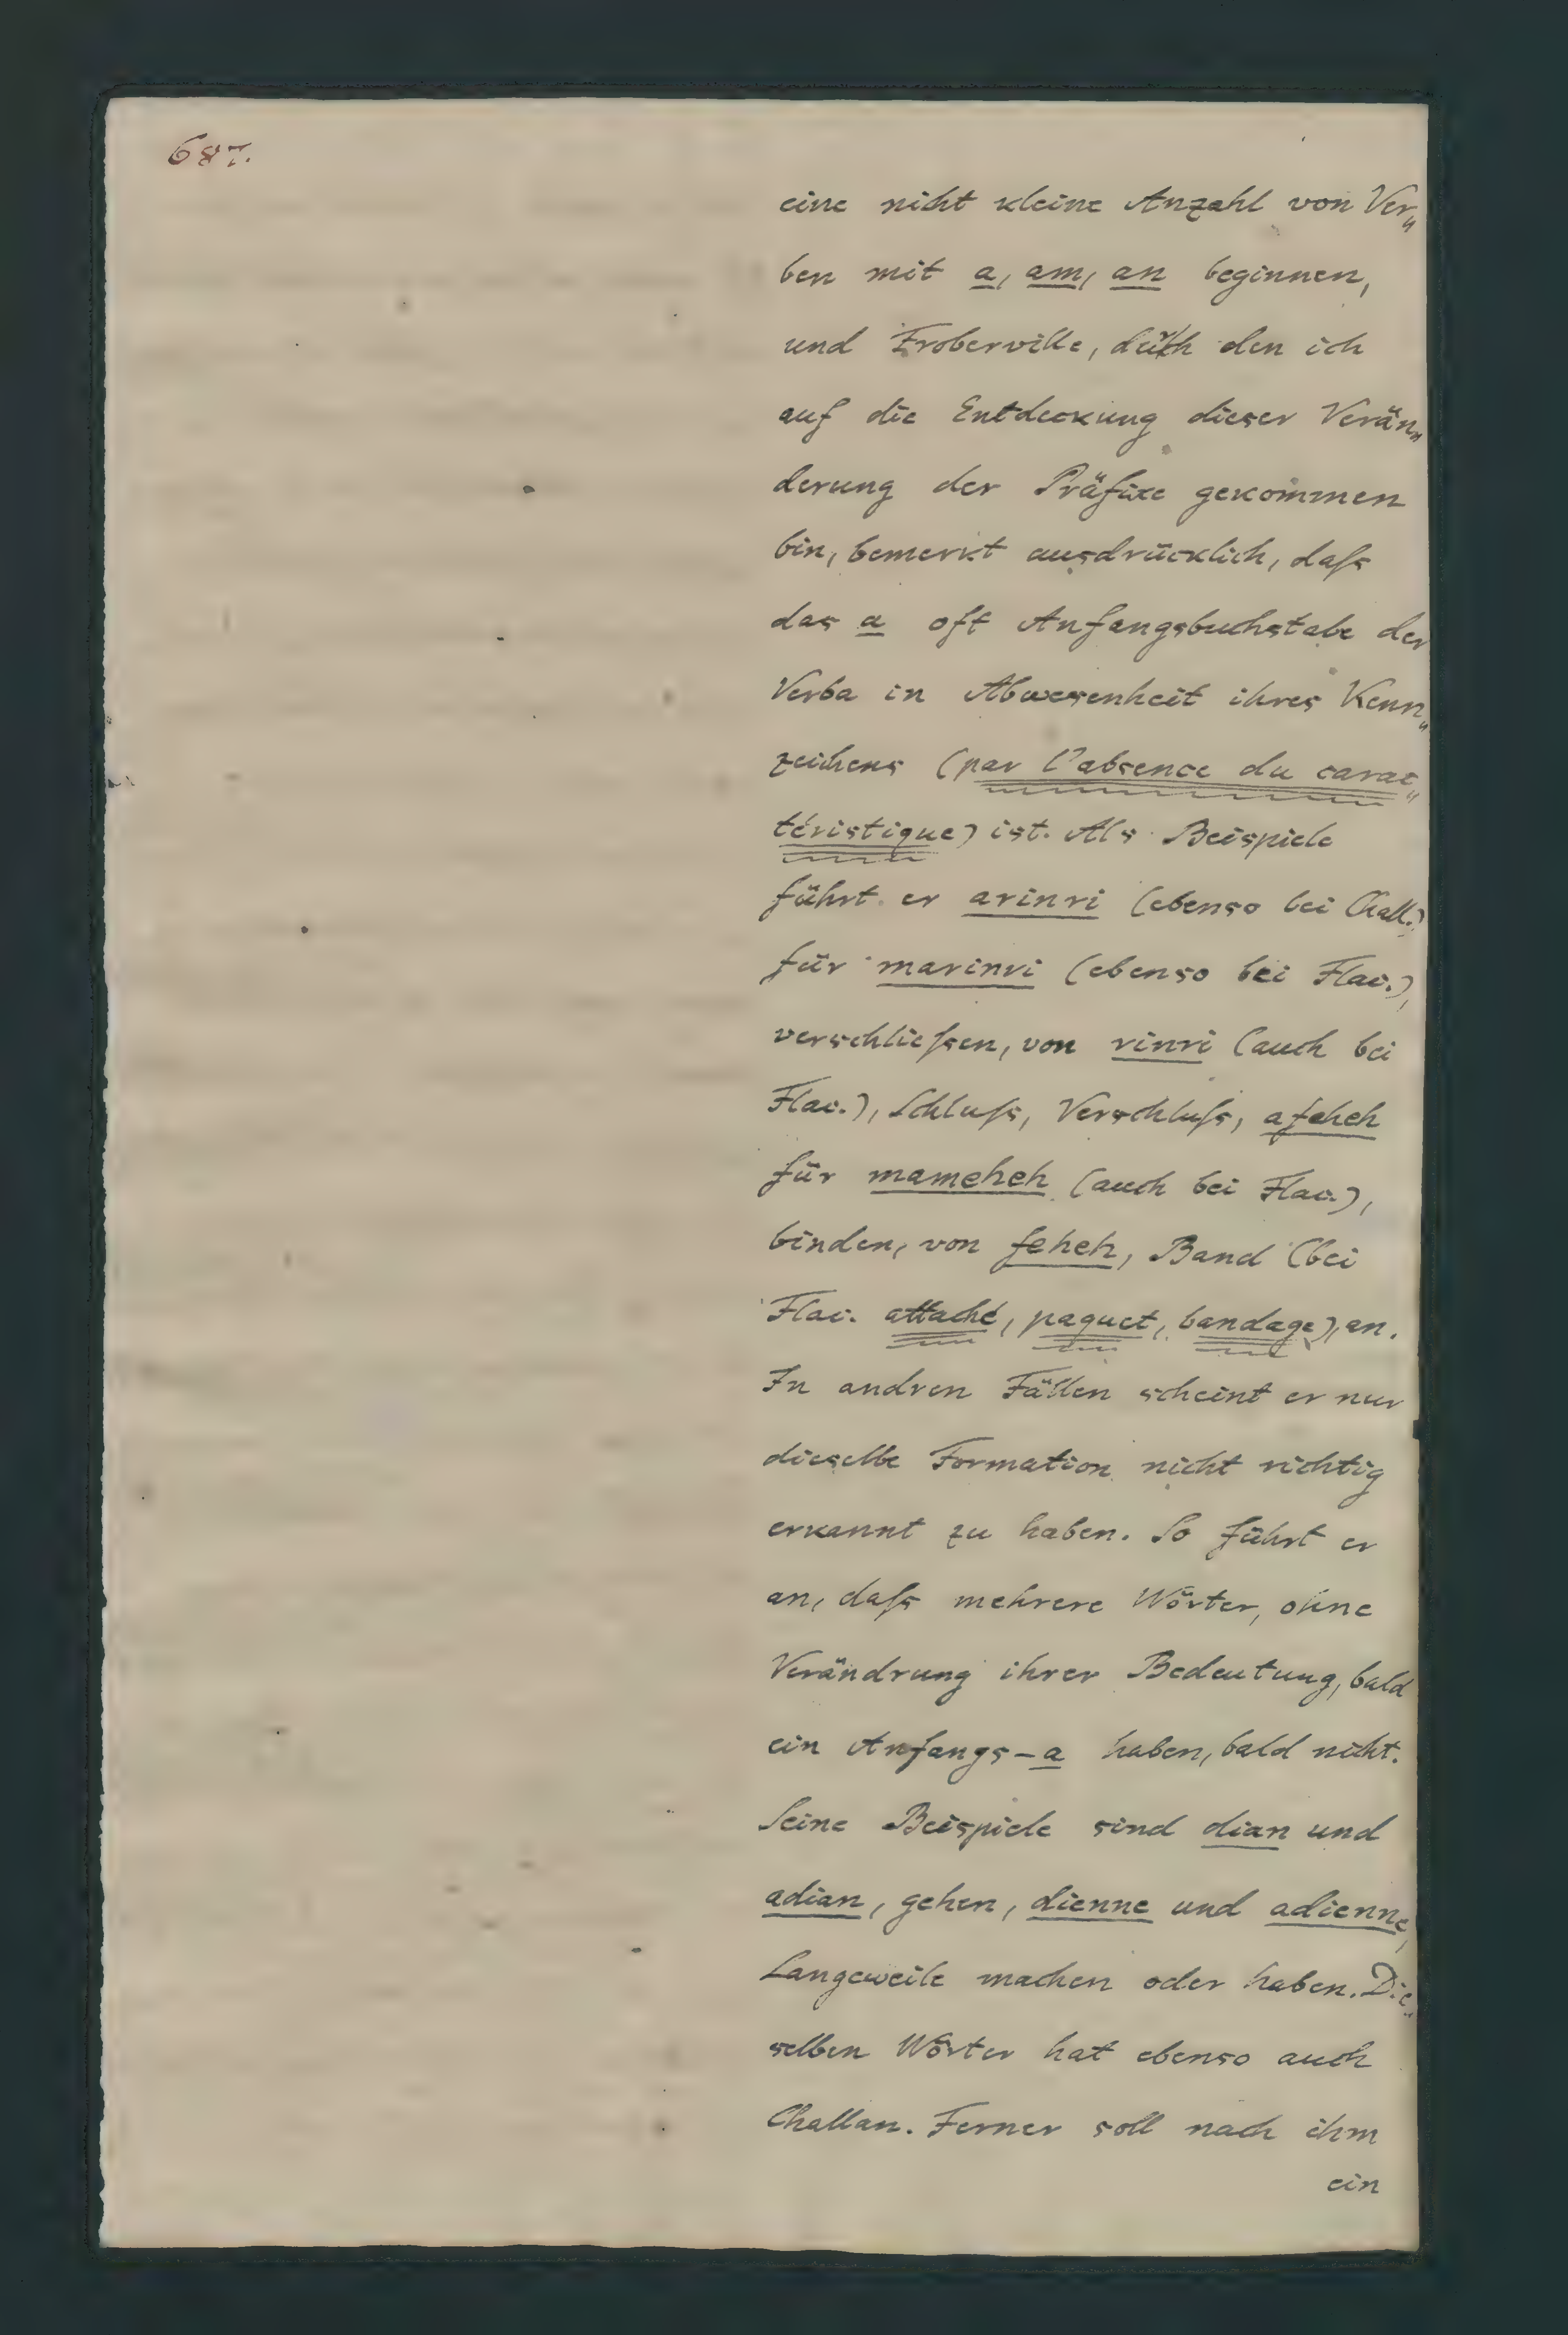 687.
eine nicht kleine Anzahl von Ver„
ben mit a, am, an beginnen,
und Froberville, durch den ich
auf die Entdeckung dieser Verän„
derung der Präfixe gekommen
bin, bemerkt ausdrücklich, daſs
das a oft Anfangsbuchstabe der
Verba in Abwesenheit ihres Kenn„
zeichens (par l'absence du carac„
téristique) ist. Als Beispiele
führt er arinri (ebenso bei Chall.)
für marinri (ebenso bei Flac.),
verschlieſsen, von rinri (auch bei
Flac.), Schluſs, Verschluſs, afeheh
für mameheh (auch bei Flac.),
binden, von feheh, Band (bei
Flac. attaché, paquet, bandage), an.
In andren Fällen scheint er nur
dieselbe Formation nicht richtig
erkannt zu haben. So führt er
an, daſs mehrere Wörter, ohne
Verändrung ihrer Bedeutung, bald
ein Anfangs-a haben, bald nicht.
Seine Beispiele sind dian und
adian, gehen, dienne und adienne,
Langeweile machen oder haben. Die„
selben Wörter hat ebenso auch
Challan. Ferner soll nach ihm
ein